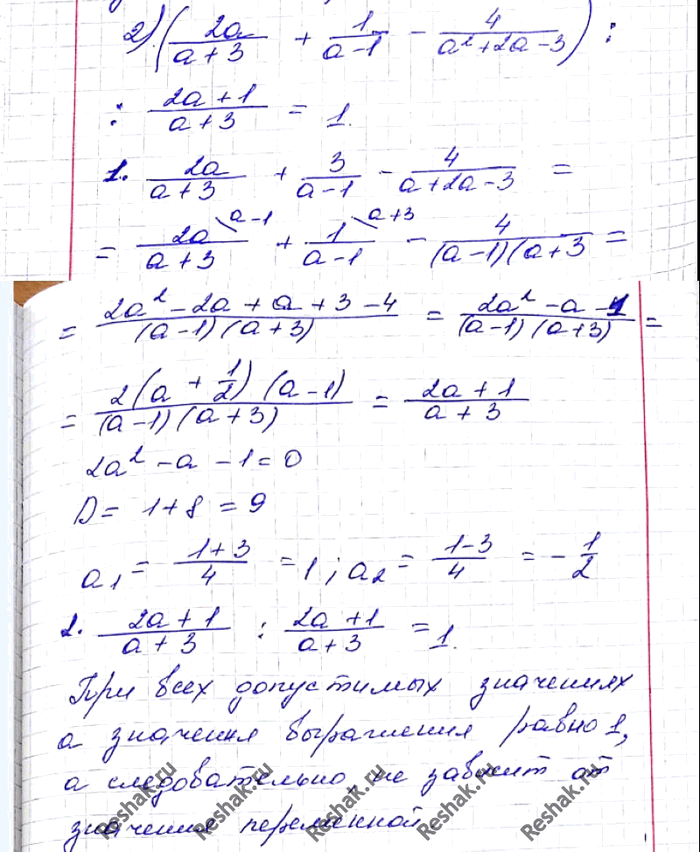 2) (2a/(a+3) + 1/(a-1) - 4/(a²+2a-3)) :
: (2a+1)/(a+3) = 1.
1. 2a/(a+3) + 3/(a-1) - 4/(a+2a-3) =
= 2a\a-1/(a+3) + 1\a+3/(a-1) - 4/((a-1)(a+3 =
= (2a²-2a+a+3-4)/((a-1)(a+3)) = (2a²-a-1)/((a-1)(a+3)) =
= 2(a+1/2)(a-1)/((a-1)(a+3)) = (2a+1)/(a+3)
2a²-a-1=0
D= 1+8=9
a₁= (1+3)/4 =1; a₂= (1-3)/4 = -1/2
2. (2a+1)/(a+3) : (2a+1)/(a+3) =1.
При всех допустимых значениях
а значения выражения равно 1,
а следовательно, не зависит от
значения переменной.
Reshak.ru
Reshak.ru
Reshak.ru
Reshak.ru